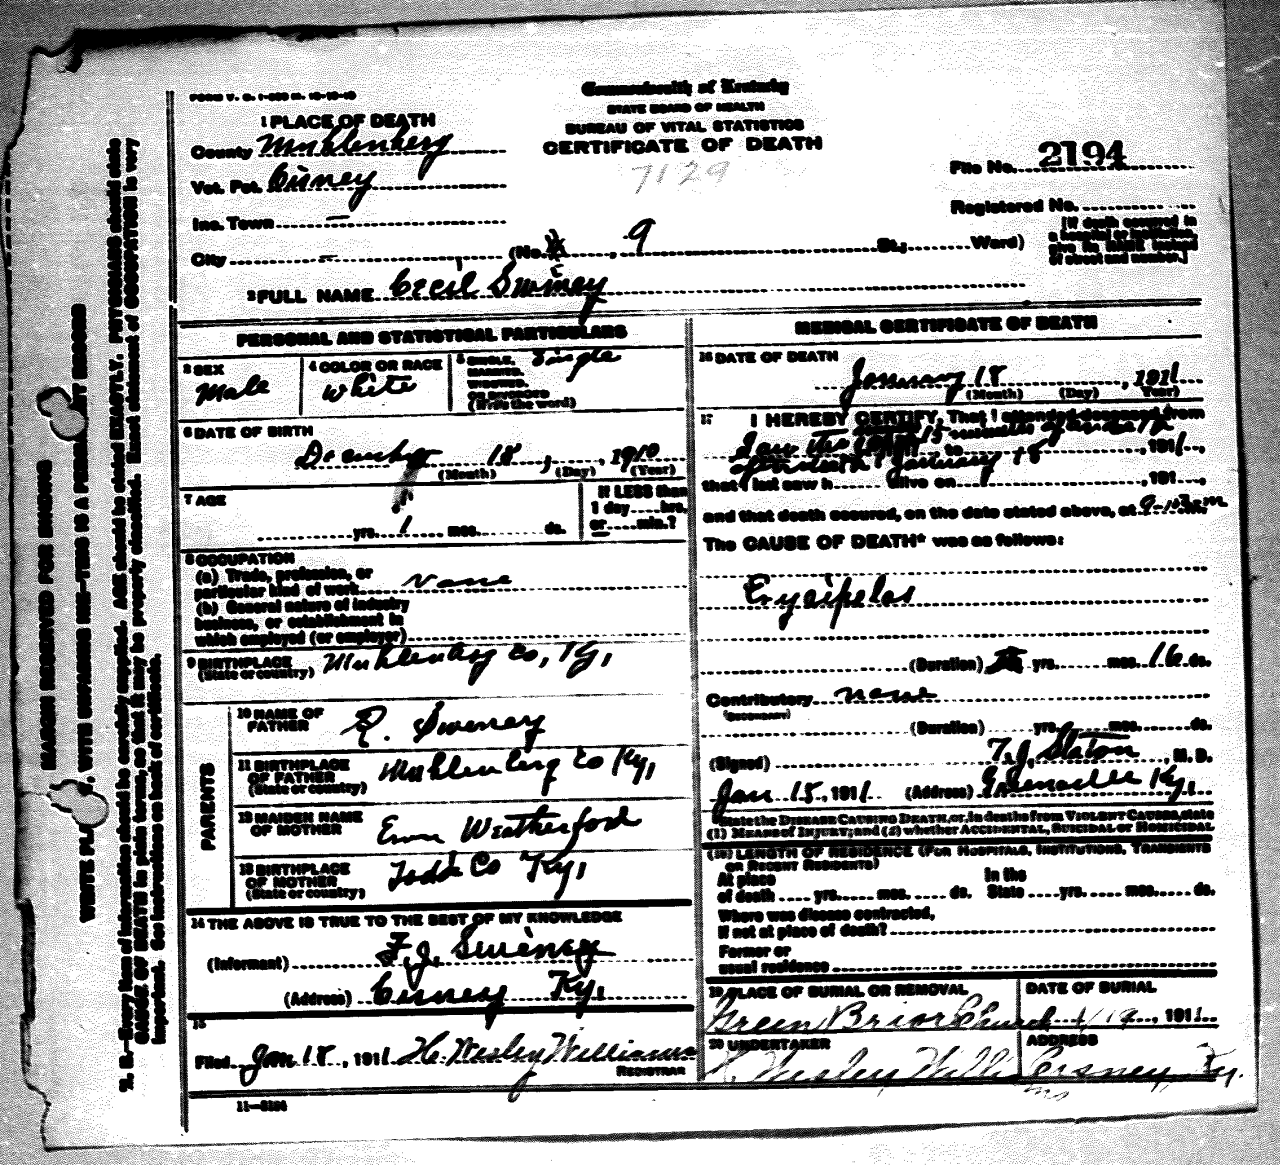 FORM V. S. 1-
Commonwealth of Kentucky
STATE BOARD OF HEALTH
BUREAU OF VITAL STATISTICS
CERTIFICATE OF DEATH
7129
1 PLACE OF DEATH
County Muhlenberg
Vot. Pct. Cisney
Inc. Town –
City – (No. , 9 St.; Ward)
File No. 2194
Registered No.
[If death occurred in a hospital or institution, give its NAME instead of street and number.]
2 FULL NAME Cecil Swiney
PERSONAL AND STATISTICAL PARTICULARS
3 SEX Male
4 COLOR OR RACE White
5 SINGLE, MARRIED, WIDOWED, OR DIVORCED (Write the word) Single
6 DATE OF BIRTH
December 18, 1910
(Month) (Day) (Year)
7 AGE
yrs. 1 mos. ds.
If LESS than 1 day hrs. or min.?
8 OCCUPATION
(a) Trade, profession, or
particular kind of work None
(b) General nature of industry
business, or establishment in
which employed (or employer)
9 BIRTHPLACE
(State or country) Muhlenberg Co, Ky,
PARENTS
10 NAME OF FATHER R. Swiney
11 BIRTHPLACE OF FATHER (State or country) Muhlenberg Co Ky,
12 MAIDEN NAME OF MOTHER Weatherford
13 BIRTHPLACE OF MOTHER (State or country) Todd Co Ky,
14 THE ABOVE IS TRUE TO THE BEST OF MY KNOWLEDGE
(Informant) F. J. Swiney
(Address) Cisney Ky,
15
Filed Jan 18, 1911 H Wesley Williams
REGISTRAR
11—
MEDICAL CERTIFICATE OF DEATH
16 DATE OF DEATH
January 18, 1911
(Month) (Day) (Year)
17 I HEREBY CERTIFY, That I attended deceased from
Jan 15 to , 1911,
January 18
that I last saw h alive on , 191 ,
and that death occured, on the date stated above, at 9- m.
The CAUSE OF DEATH* was as follows:
Erysipelas
(Duration) yrs. mos. 16 ds.
Contributory none
(SECONDARY)
(Duration) yrs. mos. ds.
(Signed) T. J. Slaton, M. D.
Jan 18, 1911 (Address) Ky,
*State the DISEASE CAUSING DEATH, or, in deaths from VIOLENT CAUSES, state
(1) MEANS OF INJURY; and (2) whether ACCIDENTAL, SUICIDAL or HOMICIDAL
(18) LENGTH OF RESIDENCE (FOR HOSPITALS, INSTITUTIONS, TRANSIENTS
OR RECENT RESIDENTS)
At place of death yrs. mos. ds. In the State yrs. mos. ds.
Where was disease contracted,
if not at place of death?
Former or
usual residence
19 PLACE OF BURIAL OR REMOVAL Green Brior Church
DATE OF BURIAL 1/19, 1911.
20 UNDERTAKER H. Wesley Williams
ADDRESS Cisney, Ky.
MARGIN RESERVED FOR BINDING
WRITE PLAINLY, WITH UNFADING INK—THIS IS A PERMANENT RECORD
N. B.—Every item of information should be carefully supplied. AGE should be stated EXACTLY. PHYSICIANS should state
CAUSE OF DEATH in plain terms, so that it may be properly classified. Exact statement of OCCUPATION is very
important. See instructions on back of certificate.